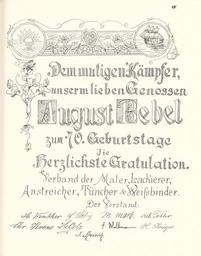 Dem mutigen Kämpfer,
unserm lieben Genossen
August Bebel
zum 70. Geburtstage
die
Herzlichste Gratulation.
Verband der Maler, Lackierer,
Anstreicher, Tüncher & Weißbinder.
Der Vorstand: